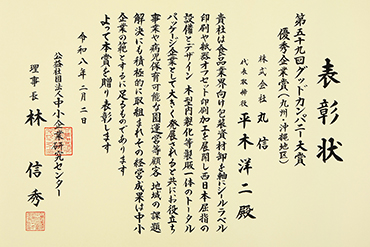 表彰状
第五十九回グッドカンパニー大賞
優秀企業賞(九州・沖縄地区)
株式会社 丸信
代表取締役 平木洋二殿
貴社は食品業界向け包装資材卸を軸にシールラベル
印刷や紙器オフセット印刷加工を展開し西日本屈指の
設備とデザイン 木型内製化等製販一体のトータル
パッケージ企業として大きく発展されると共にお役立ち
事業や病児保育可能な園運営等顧客 地域の課題
解決にも積極的に取組まれその経営成果は中小
企業の範とするに足るものであります
よって本賞を贈り表彰します
令和八年二月二日
公益社団法人中小企業研究センター
理事長 林信秀